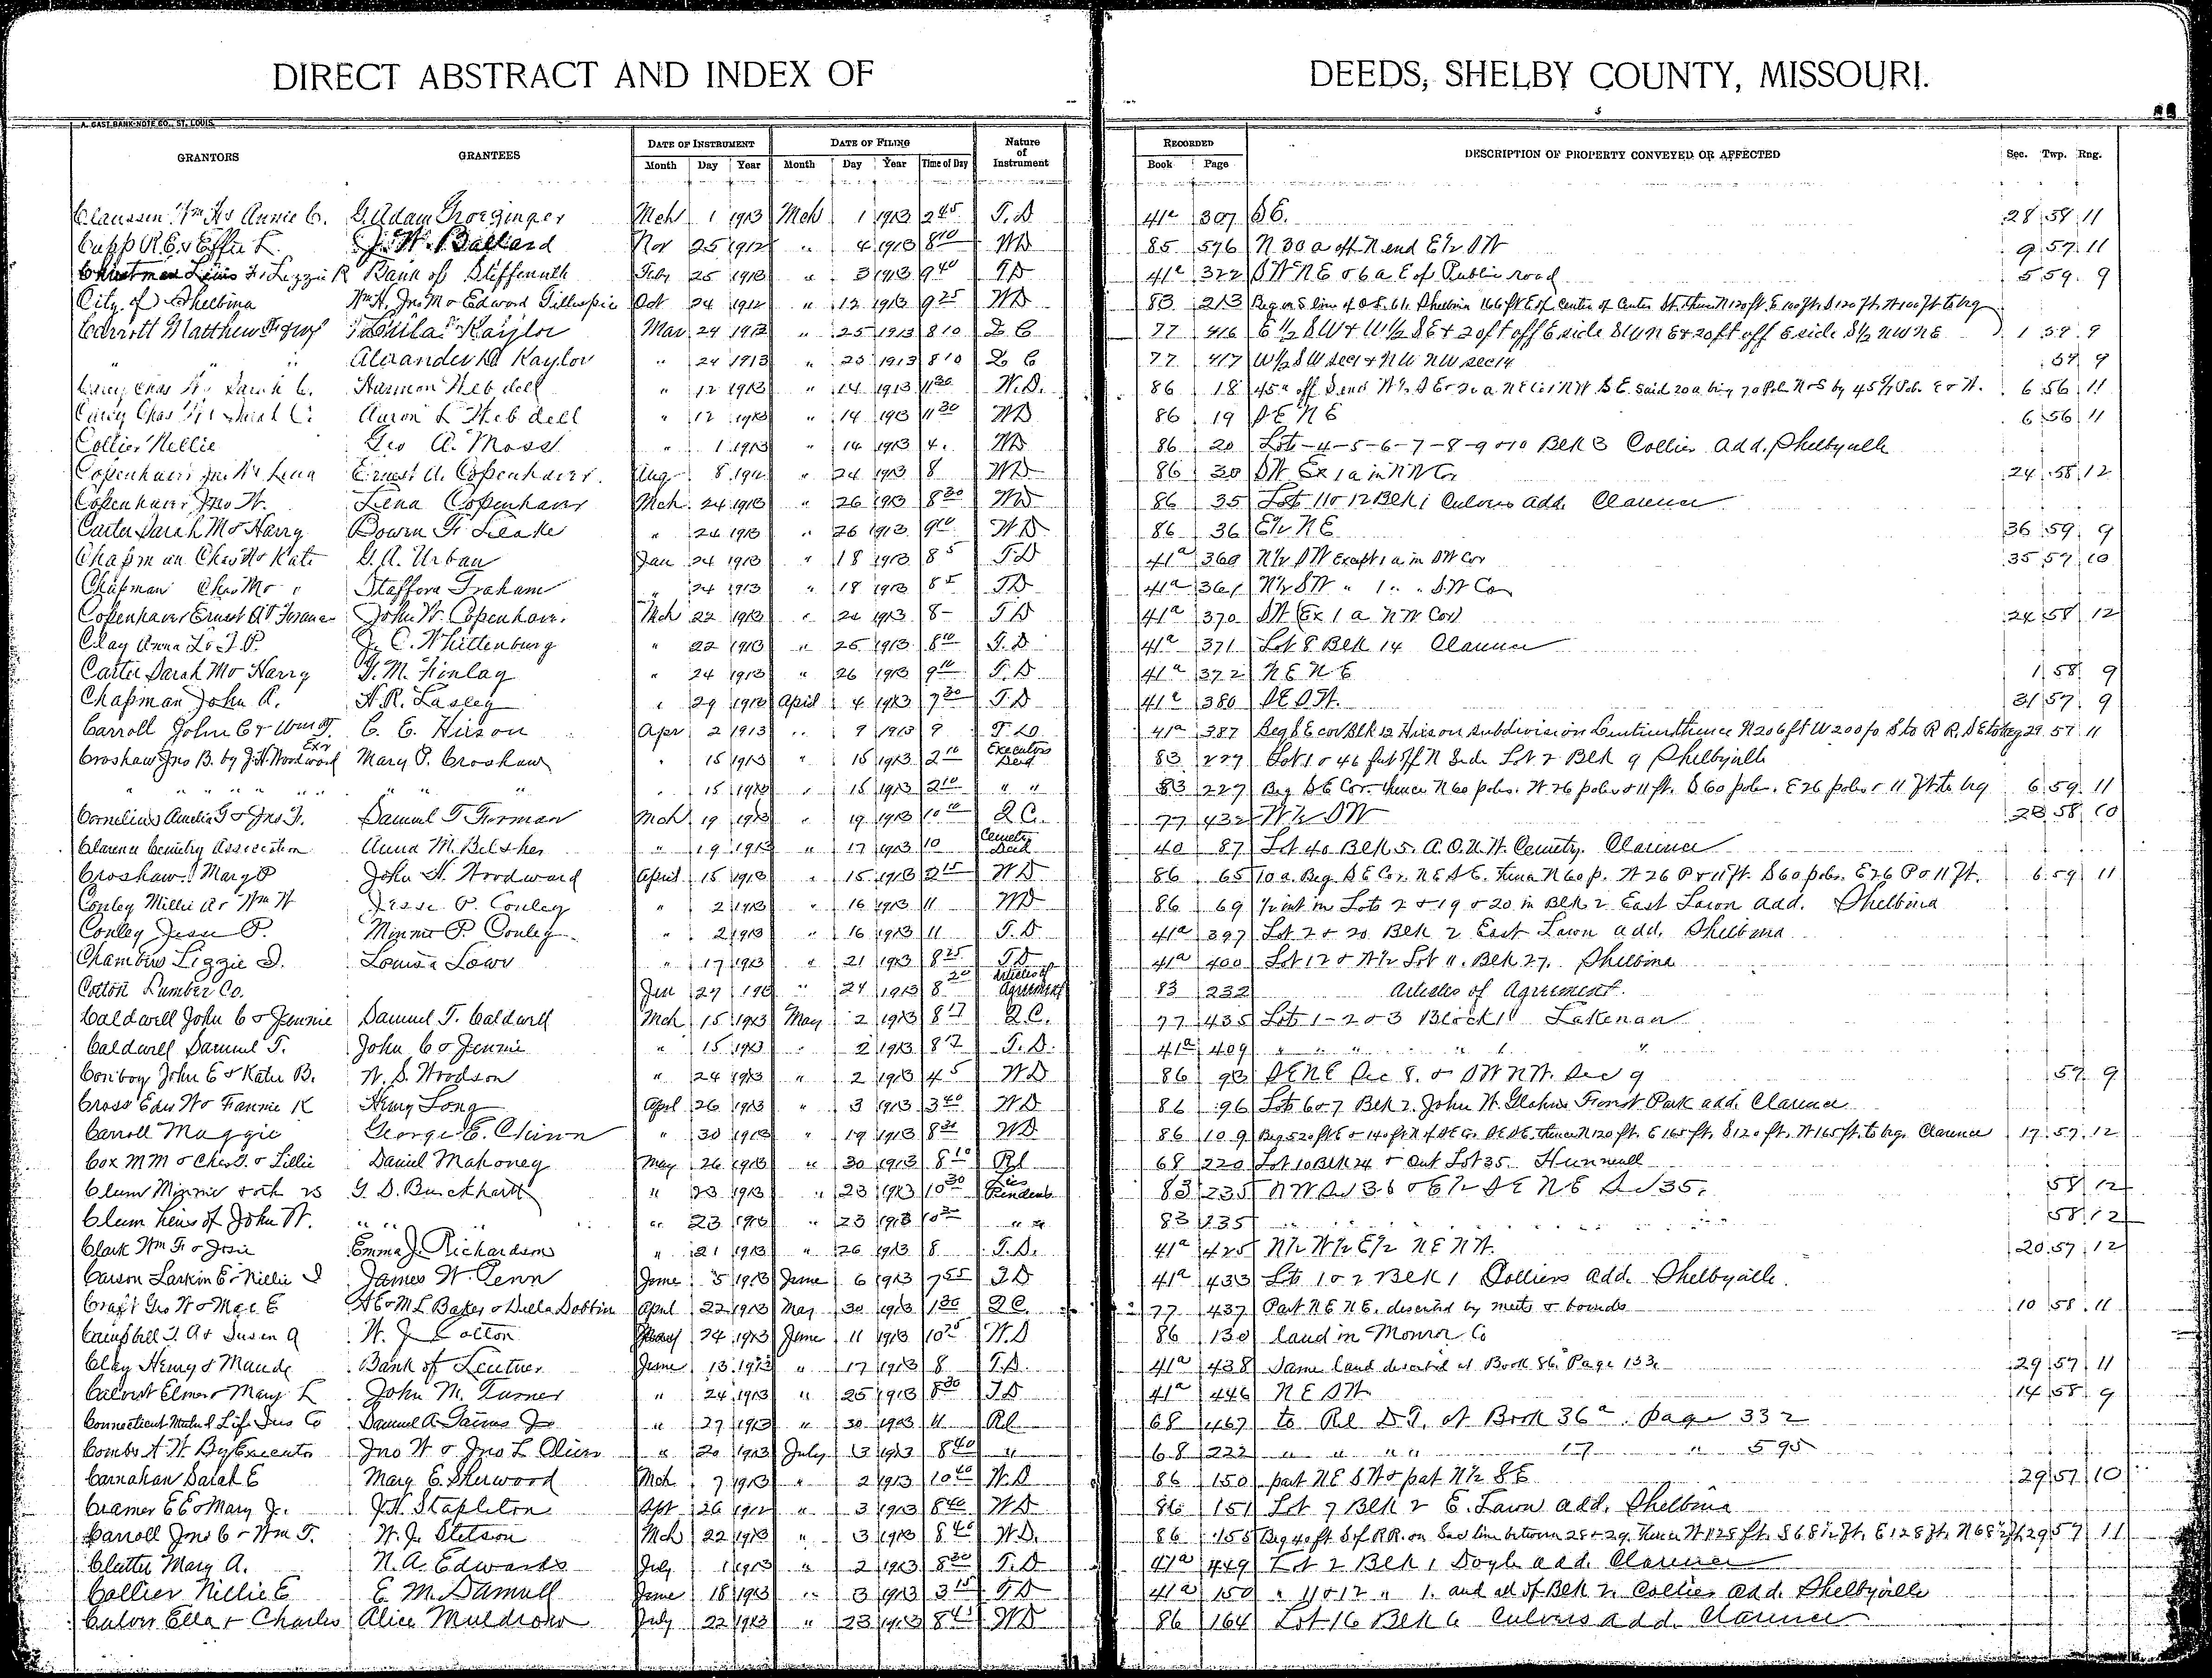 DIRECT ABSTRACT AND INDEX OF DEEDS, SHELBY COUNTY, MISSOURI.
A. GAST BANK-NOTE CO., ST. LOUIS.
GRANTORS GRANTEES DATE OF INSTRUMENT DATE OF FILING Nature of Instrument RECORDED DESCRIPTION OF PROPERTY CONVEYED OR AFFECTED Sec. Twp. Rng.
Month Day Year Month Day Year Time of Day Book Page
Claussen Wm H & Annie C. G. Adam Groezinger Mch 1 1913 Mch 1 1913 2 45 T.D 41a 307 SE. 28 58 11
Cupp R E & Effie L J. W. Ballard Nov 25 1912 " 4 1913 8 10 WD 85 596 N 30 a off N end E½ SW 9 57 11
Christman Louis F & Lizzie R Bank of Steffenville Feby 25 1913 " 3 1913 9 40 TD 41a 322 SW NE & 6 a E of Public road 5 59 9
City of Shelbina Wm H, Jno M & Edward Gillespie Oct 24 1912 " 12 1913 9 25 WD 83 213 Beg on S line of Shelbina 166 ft E of center of Center St. thence N 120 ft. E 100 ft. S 120 ft. W 100 ft to beg
Carrott Matthew F Kaylor Mar 24 1913 " 25 1913 8 10 Q C 77 416 E ½ SW & W ½ SE & 20 ft off E side SW NE & 20 ft off E side S½ NW NE 1 58 9
" " Alexander D Kaylor " 24 1913 " 25 1913 8 10 Q C 77 417 W ½ SW sec 1 & NW NW sec 12 58 9
Carey Chas W & Sarah C. Harmon Hebdell " 12 1913 " 14 1913 11 30 W.D. 86 18 45 a off S end W½ SE & 20 a NE Cor NW SE said 20 a being 70 Pol. N & S by 45 5/7 Pols. E & W. 6 56 11
Carey Chas W & Sarah C. Aaron L Hebdell " 12 " 14 1913 11 30 WD 86 19 SE NE 6 56 11
Collier Nellie Geo A. Moss " 1 1913 " 14 1913 4. WD 86 20 Lots 4-5-6-7-8-9 & 10 Blk 3 Collier add. Shelbyville
Copenhaver Jno W & Lena Ernest A. Copenhaver Aug 8 " 24 1913 8 WD 86 30 SW Ex 1 a in NW Cor 24 58 12
Copenhaver Jno W. Lena Copenhaver Mch. 24 1913 " 26 1913 8 30 WD 86 35 Lots 11 & 12 Blk 1 Culvers add. Clarence
Carter Sarah M & Harry Bowen F Leake " 24 1913 " 26 1913 9 10 WD 86 36 E½ NE 36 59 9
Chapman Chas M & Kate G. A. Urban Jan 24 1913 " 18 1913 8 5 T.D 41a 360 N½ SW Except 1 a in SW Cor 35 57 10
Chapman Chas M & " Stafford Graham " 24 1913 " 18 1913 8 5 TD 41a 361 N½ SW " 1 " " SW Cor
Copenhaver Ernest A John W. Copenhaver Mch 22 1913 " 24 1913 8- TD 41a 370 SW (Ex 1 a NW Cor) 24 58 12
Clay Anna L & J P. J. C. Whittenburg " 22 1913 " 25 1913 8 10 T.D 41a 371 Lot 8 Blk 14 Clarence
Carter Sarah M & Harry G. M. Finlay " 24 1913 " 26 1913 9 10 T.D 41a 372 NE NE 1 58 9
Chapman John A. H. R. Lasley " 29 1913 April 4 1913 7 30 T.D 41a 380 SE SW. 31 57 9
Carroll John C & Wm T. C. E. Hirson Apr 2 1913 " 9 1913 9 T.D. 41a 387 Beg S E cor Blk 12 Hixson subdivision thence N 206 ft W 200 S to R R. SE to beg 29 57 11
Croshaw Jno B. by J.H. Woodward Exr Mary P. Croshaw " 15 1913 " 15 1913 2 10 Executors Deed 83 227 Lot 1 & 46 feet off N Side Lot 2 Blk 9 Shelbyville
" " " " " " 15 1913 " 15 1913 2 10 " " 83 227 Beg SE Cor. thence N 60 poles. W 26 poles & 11 ft. S 60 poles. E 26 poles & 11 ft to beg 6 59 11
Cornelius Amelia G & Jno T. Samuel T Furman Mch 19 1913 " 19 1913 10 10 Q C. 77 432 W½ SW 28 58 10
Clarence Cemetry Association Anna M. Belsher " 19 1913 " 17 1913 10 Cemetry Deed 40 87 Lot 40 Blk 5. A.O.U.W. Cemetry. Clarence
Croshaw Mary P John H. Woodward April 15 1913 " 15 1913 2 15 W D 86 65 10 a. Beg SE Cor. NE SE. thence N 60 p. W 26 P & 11 ft. S 60 poles. E 26 P & 11 ft. 6 59 11
Conley Millie A & Wm W Jesse P. Conley " 2 1913 " 16 1913 11 WD 86 69 ½ int in Lots 2 & 19 & 20 in Blk 2 East Lawn add. Shelbina
Conley Jesse P. Minnie P. Conley " 2 1913 " 16 1913 11 T.D 41a 397 Lot 2 & 20 Blk 2 East Lawn add. Shelbina
Chambers Lizzie D. Louisa Lowe " 17 1913 " 21 1913 8 25 TD 41a 400 Lot 12 & N½ Lot 11. Blk 27. Shelbina
Cotton Lumber Co. Jan 27 " 24 1913 8 20 Articles of Agreement 83 232 Articles of Agreement.
Caldwell John C & Jennie Samuel T. Caldwell Mch 15 1913 May 2 1913 8 17 Q C. 77 435 Lots 1-2 & 3 Block 1 Lakenan
Caldwell Samuel T. John C & Jennie " 15 1913 " 2 1913 8 17 T.D. 41a 409 " " " " 1. "
Conboy John E & Katie B. W. S. Woodson " 24 1913 " 2 1913 4 5 WD 86 93 SE NE Sec 8. & SW NW. Sec 9 57 9
Cross Edw W & Fannie K Henry Long April 26 1913 " 3 1913 3 40 WD 86 96 Lots 6 & 7 Blk 2. John W. Glahns Forest Park add. Clarence
Carroll Maggie George E. Chinn " 30 1913 " 19 1913 8 30 WD 86 109 Beg 520 ft E & 140 ft N of SE Cor SE SE. thence N 120 ft. E 165 ft. S 120 ft. W 165 ft. to beg. Clarence 17 57 12
Cox M M & Chas T. & Lillie Daniel Mahoney May 26 1913 " 30 1913 8 10 Rl 68 220 Lot 10 Blk 24 & Out Lot 35. Hunnewell
Clum Minnie & oth vs G. D. Burckhartt " 23 1913 " 23 1913 10 30 Lies Pendens 83 235 NW Sd 36 & E½ SE NE Sd 35. 58 12
Clum heirs of John W. " " " " 23 1913 " 23 1913 10 30 " " 83 235 " " 58 12
Clark Wm F & Josie Emma J. Richardson " 21 1913 " 26 1913 8 T.D. 41a 425 N½ W½ E½ NE NW. 20 57 12
Carson Larkin E & Nellie D James W. Penn June 5 1913 June 6 1913 7 55 TD 41a 433 Lots 1 & 2 Blk 1 Colliers add. Shelbyville.
Craft Geo W & Mae E H C & M L Baker & Della Dobbin April 22 1913 May 30 1913 1 30 Q C. 77 437 Part NE NE. described by meets & bounds 10 58 11
Campbell T. A & Susan A W. J. Cotton 24 1913 June 11 1913 10 25 W.D 86 130 land in Monroe Co
Clay Henry & Maude Bank of Leutner June 13 1913 " 17 1913 8 T.D. 41a 438 Same land described at Book 86. Page 133. 29 57 11
Calvert Elmer & Mary L John M. Turner " 24 1913 " 25 1913 8 30 TD 41a 446 NE SW 14 58 9
Connecticut Mutual Life Ins Co Samuel A. Gaines Jr " 27 1913 " 30 1913 11 Rl 68 467 to Rl D.T. of Book 36a. page 332
Combs A W By Executor Jno W & Jno L Oliver " 20 1913 July 3 1913 8 40 " 68 222 " " " " 17 " 595
Carnahan Sarah E Mary E. Sherwood Mch 7 1913 " 2 1913 10 40 W.D 86 150 part NE SW & pat N½ SE 29 57 10
Cramer E E & Mary J. J. H. Stapleton Apr 26 1912 " 3 1913 8 40 WD 86 151 Lot 7 Blk 2 E. Lawn add. Shelbina
Carroll Jno C & Wm T. W. J. Stetson Mch 22 1913 " 3 1913 8 40 W.D. 86 155 Beg 40 ft S of R.R. on Sec line between 28 & 29. thence W 128 ft. S 68½ ft. E 128 ft. N 68½ ft 29 57 11
Clutter Mary A. N. A. Edwards July 1 1913 " 2 1913 8 30 T.D 41a 449 Lot 2 Blk 1 Doyle add. Clarence
Collier Nillie E E. M. Damrell June 18 1913 " 3 1913 3 15 TD 41a 150 " 11 & 12 " 1. and all of Blk 2. Collier add. Shelbyville
Culver Ella & Charles Alice Muldrow July 22 1913 " 23 1913 8 45 WD 86 164 Lot 16 Blk 6 Culvers add. Clarence